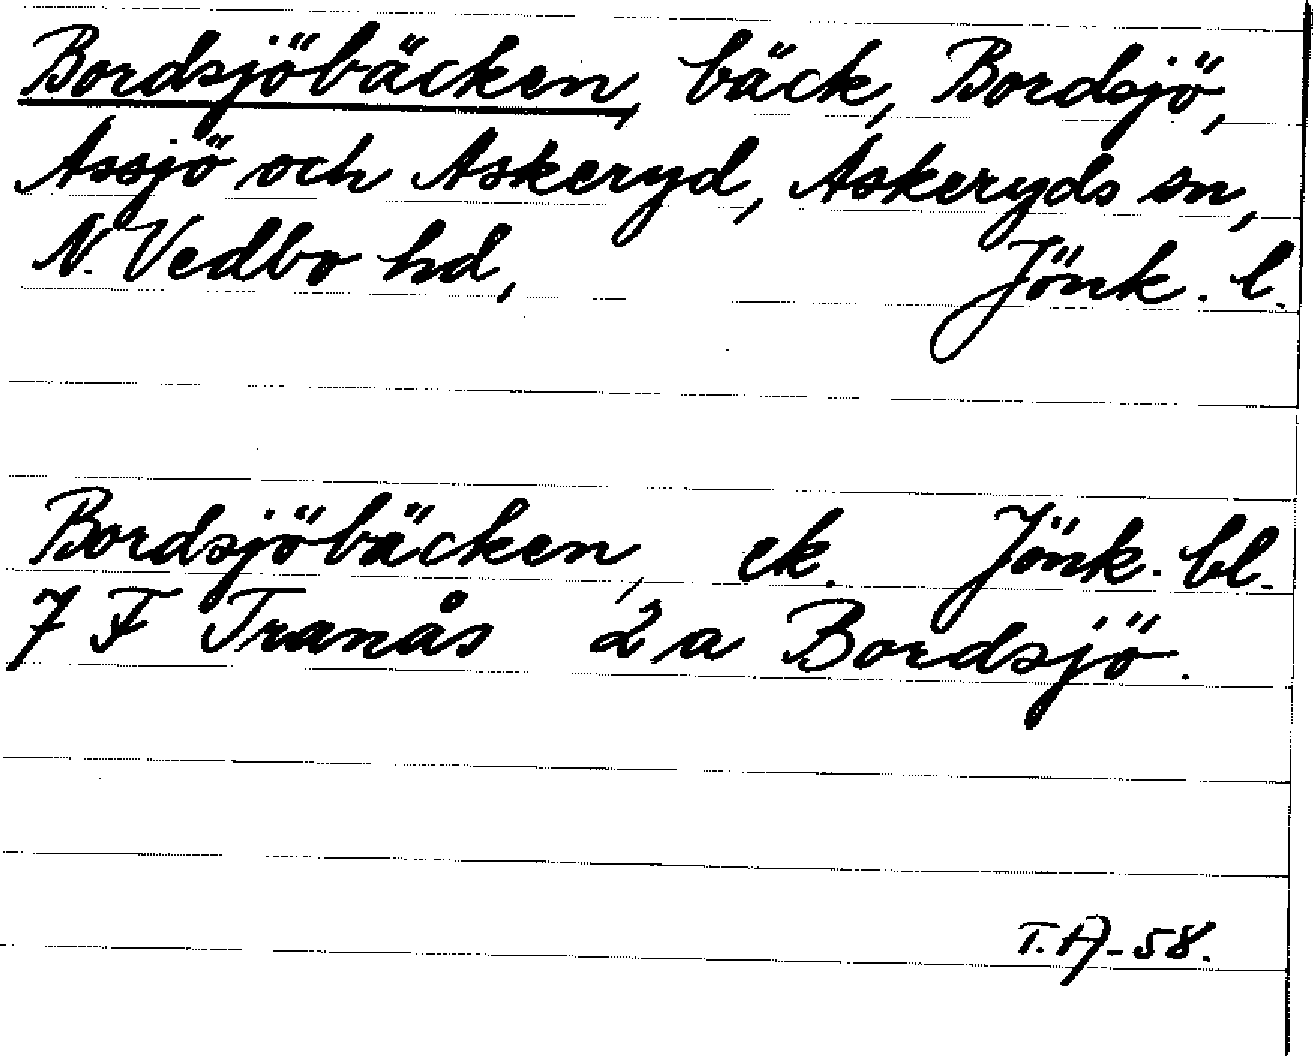 Bordsjöbäcken, bäck, Bordsjö,
Assjö och Askeryd, Askeryds sn,
N. Vedbo hd, Jönk. l.
Bordsjöbäcken, ek. Jönk. bl.
7 F Tranås 2 a Bordsjö.
T.A-58.